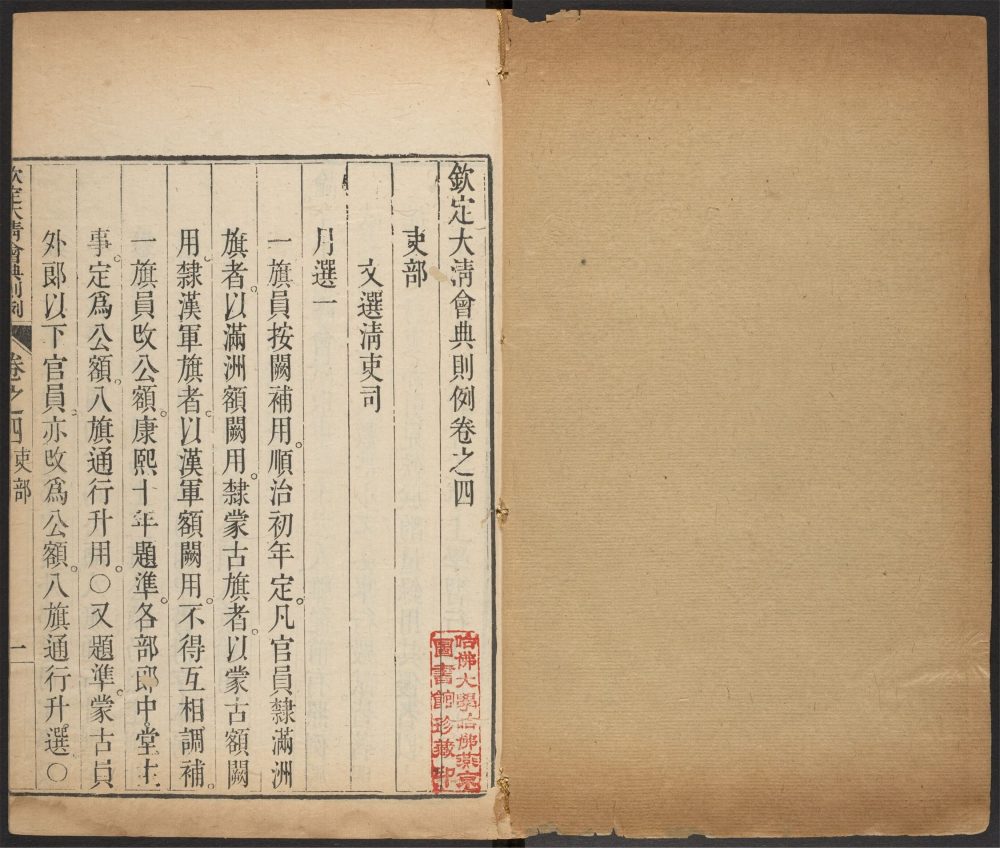 欽定大清會典則例卷之四
吏部
文選清吏司
月選一
一旗員按闕補用。順治初年定。凡官員隸滿洲
旗者。以滿洲額闕用。隸蒙古旗者。以蒙古額闕
用。隸漢軍旗者。以漢軍額闕用。不得互相調補。
一旗員改公額。康熙十年題準。各部郎中。堂主
事。定爲公額。八旗通行升用。○又題準。蒙古員
外郎以下官員。亦改爲公額。八旗通行升選。○
欽定大清會典則例 卷之四 吏部 一
哈佛大學哈佛燕京
圖書館珍藏印